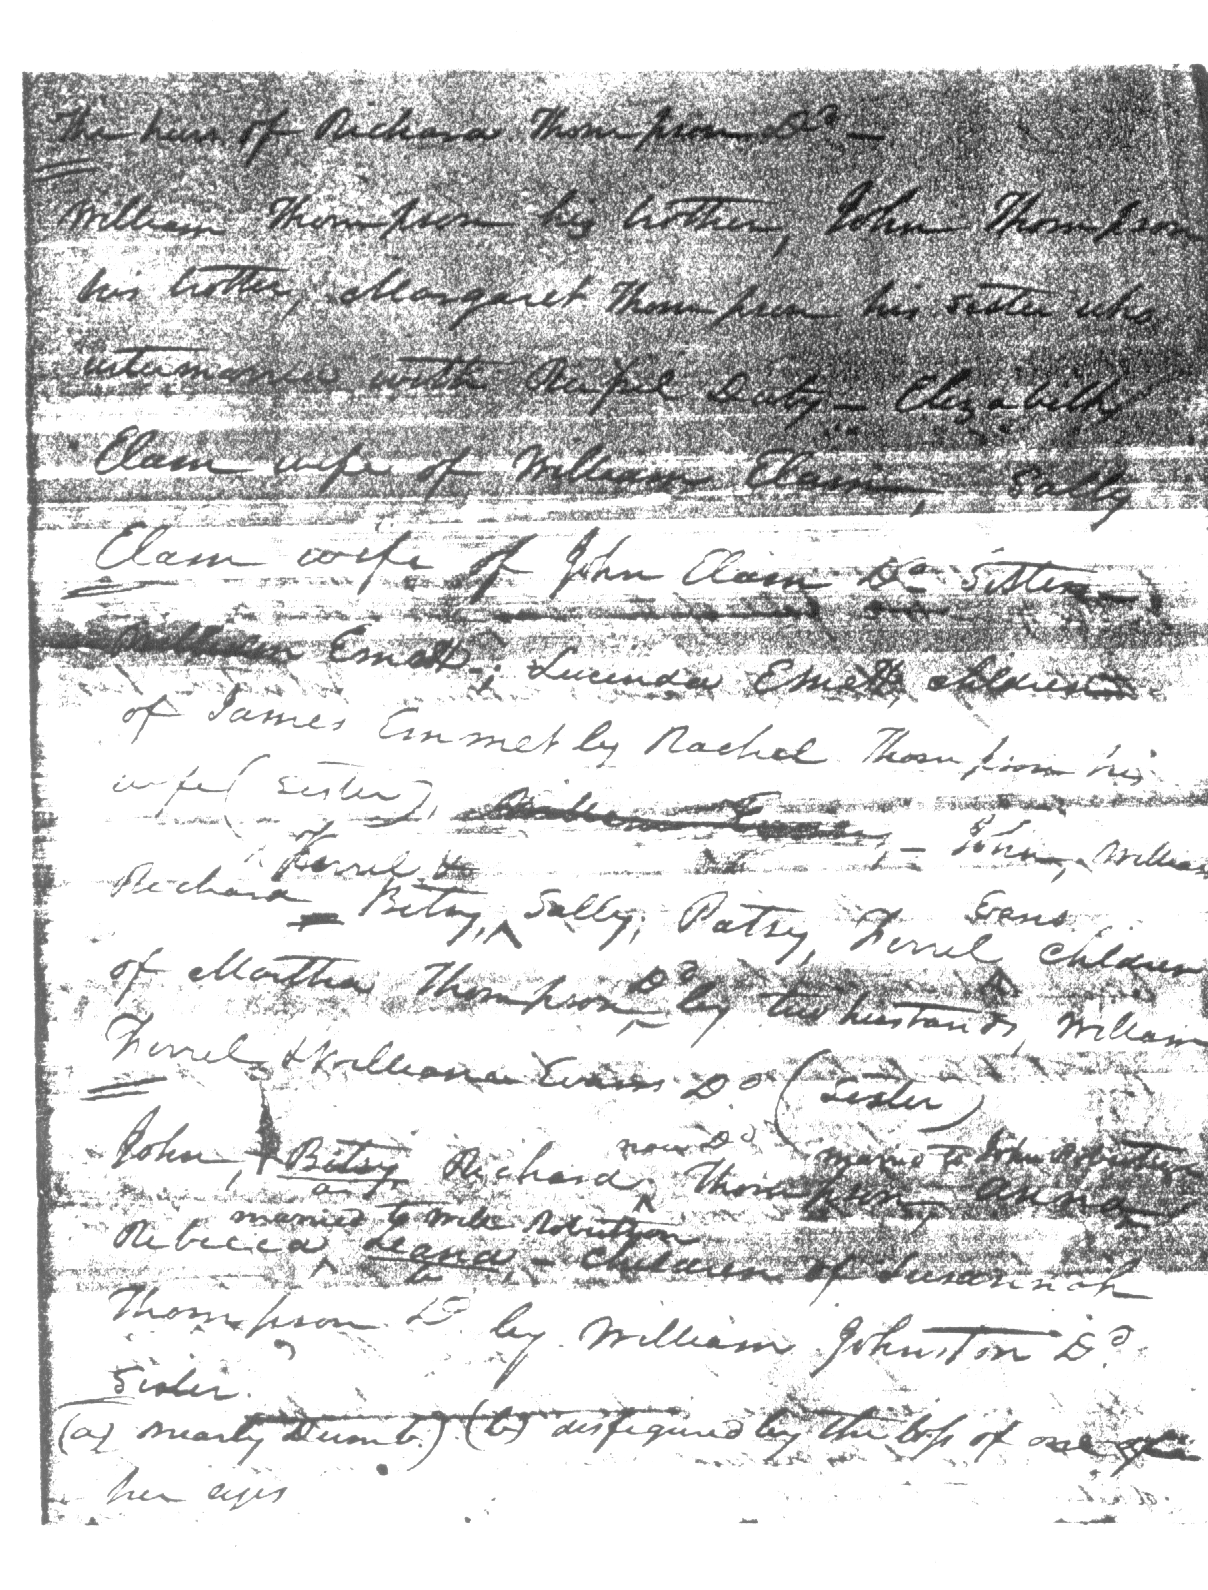 The heirs of Richard Thompson Dd —
William Thompson his brother, John Thompson
his brother, Margaret Thompson his sister who
intermarried with Daby — Elizabeth
Elam wife of William Elam, Sally
Elam wife of John Elam Dd Sisters —
William Emett, Lucinda Emett, children
of James Emmet by Rachel Thompson his
wife (Sister), — John, William
Ferrel &
Richard — Betsy, Sally, Patsy, Ferrel children
Evans
of Martha Thompson Dd by two husbands, William
Ferrel & William Evans Dd (Sister)
now Dd married to John Robertson
John, Betsy Richard Thompson, Anna
a
married to Robertson
Rebecca, — Children of Susannah
b
Thompson Dd by William Johnston Dd
Sister.
(a) nearly Dumb.) (b) disfigured by the loss of one of
her eyes